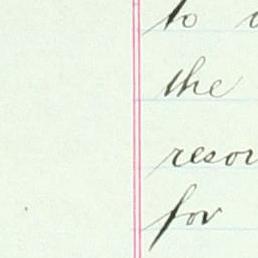 to
the
resor
for